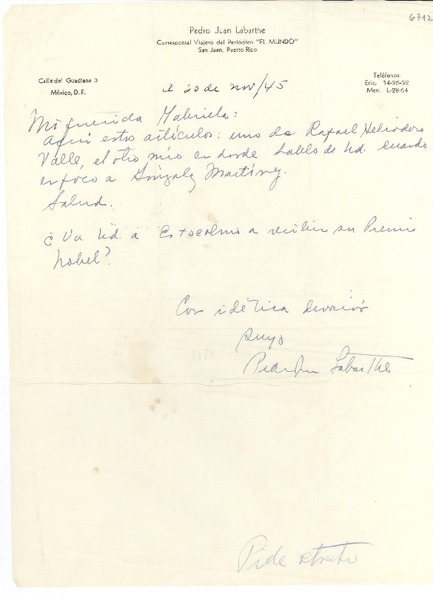 6712
Pedro Juan Labarthe
Corresponsal Viajero del Periodico "EL MUNDO"
San Juan, Puerto Rico
Calle del Guadiana 3
México, D. F.
Teléfonos:
Eric. 14-26-52
Mex. L-28-64
A 20 de nov/45
Mi querida Gabriela:
Aquí estos artículos: uno de Rafael Heliodoro
Valle, el otro mío en donde hablo de Ud. cuando
enfoco a González Martínez.
Salud.
¿Va Ud. a Estocolmo a recibir su Premio
Nobel?
Con idéntica devoción
suyo
Pedro Juan Labarthe
Pide retrato